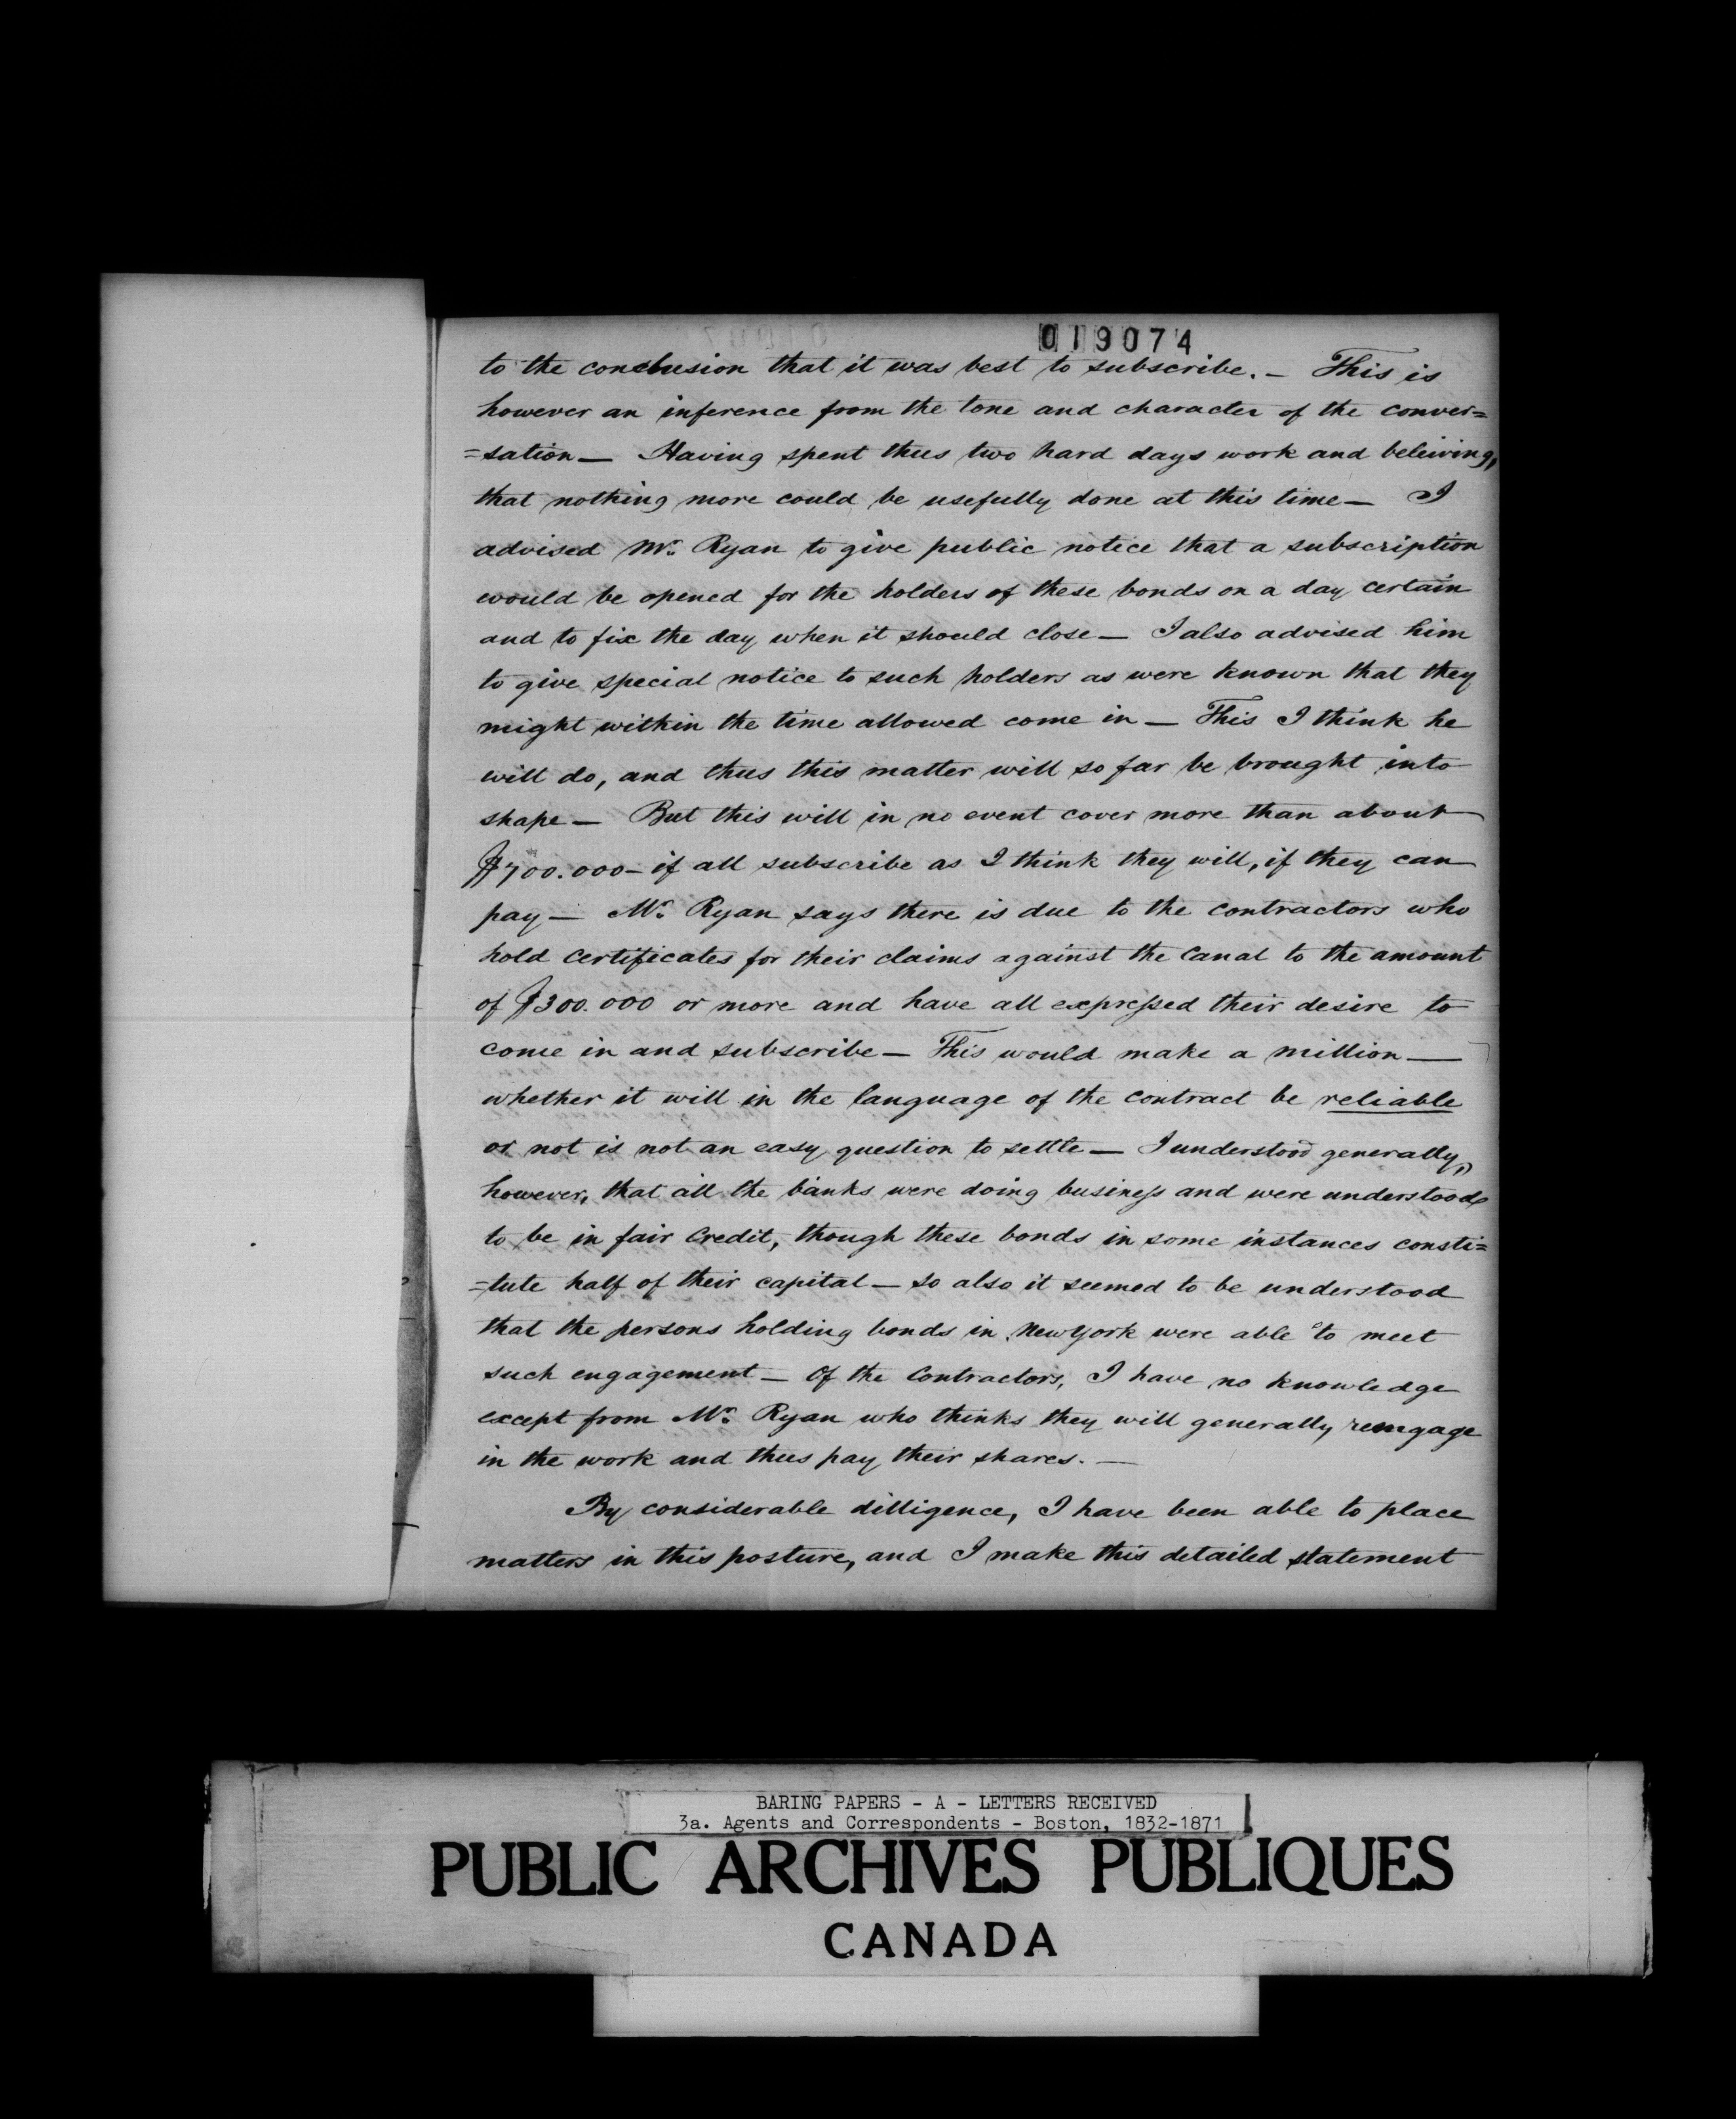 019074
to the conclusion that it was best to subscribe. — This is
however an inference from the tone and character of the conver=
=sation — Having spent thus two hard days work and beleiving,
that nothing more could be usefully done at this time — I
advised Mr. Ryan to give public notice that a subscription
would be opened for the holders of these bonds on a day certain
and to fix the day when it should close — I also advised him
to give special notice to such holders as were known that they
might within the time allowed come in — This I think he
will do, and thus this matter will so far be brought into
shape — But this will in no event cover more than about
$700.000 — if all subscribe as I think they will, if they can
pay — Mr. Ryan says there is due to the contractors who
hold certificates for their claims against the Canal to the amount
of $300.000 or more and have all expressed their desire to
come in and subscribe — This would make a million —
whether it will in the language of the contract be reliable
or not is not an easy question to settle — I understood generally,
however, that all the banks were doing business and were understood
to be in fair credit, though these bonds in some instances consti=
=tute half of their capital — so also it seemed to be understood
that the persons holding bonds in New York were able to meet
such engagement — Of the Contractors, I have no knowledge
except from Mr. Ryan who thinks they will generally reengage
in the work and thus pay their shares. —
By considerable dilligence, I have been able to place
matters in this posture, and I make this detailed statement
BARING PAPERS - A - LETTERS RECEIVED
3a. Agents and Correspondents - Boston, 1832-1871
PUBLIC ARCHIVES PUBLIQUES
CANADA